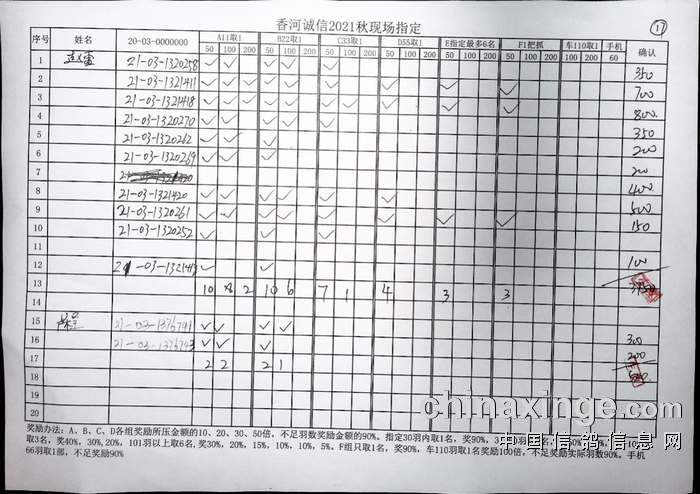 香河诚信2021秋现场指定
17
序号 姓名 20-03-0000000 A11取1 B22取1 C33取1 D55取1 E指定最多6名 F1把抓 车110取1 手机 确认
50 100 200 50 100 200 50 100 200 50 100 200 50 100 200 50 100 200 50 100 200 60
1 21-03-1320258 ✓ ✓ ✓ ✓ ✓ 350
2 21-03-1321411 700
3 21-03-1321418 800
4 21-03-1320270 350
5 21-03-1320262 200
6 21-03-1320269 200
7
8 21-03-1321420 400
9 21-03-1320261 500
10 21-03-1320252 150
11
12 21-03-1321413 100
13 10 8 2 10 6 7 1 4 3 3
14
15 21-03-1376791 300
16 21-03-1376793 200
17 2 2 2 1
18
19
20
奖励办法：A、B、C、D各组奖励所压金额的10、20、30、50倍，不足羽数奖励金额的90%。指定30羽内取1名，奖90%，
取3名，奖40%，30%，20%，101羽以上取6名，奖30%，20%，15%，10%，10%，5%。F组只取1名，奖90%，车110羽取1名奖励100倍，不足奖励实际羽数90%。手机
66羽取1部，不足奖励90%
chinaxinge.com
中国信鸽信息网